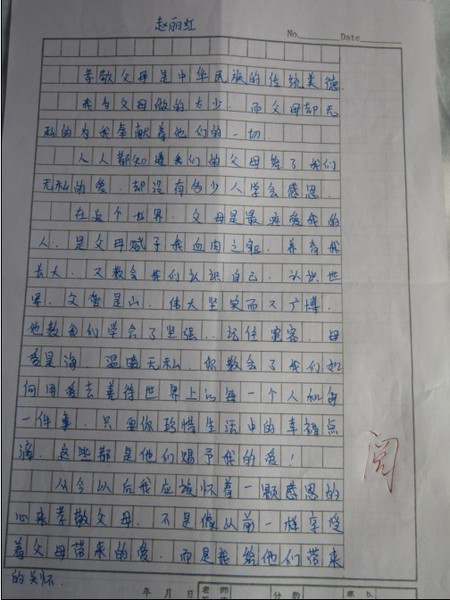 赵丽红
No. Date
孝敬父母是中华民族的传统美德.
我为父母做的太少.而父母却无
私的为我奉献着他们的一切.
人人都知道我们的父母给了我们
无私的爱.却没有多少人学会感恩.
在这个世界.父母是最疼爱我的
人.是父母赋予我血肉之躯.养育我
长大.又教会我们认识自己.认识世
界.父爱是山.伟大坚实而又广博.
他教我们学会了坚强..宽容.母
爱是海.温暖无私.你教会了我们如
何用爱去善待世界上的每一个人和每
一件事.只要你珍惜生活中的幸福点
滴.这些都是他们赐予我的爱!
从今以后我应该怀着一颗感恩的
心来孝敬父母.不是像以前一样享受
着父母带来的爱.而是我给他们带来
的关怀.
阅
年 月 日 老师 分数